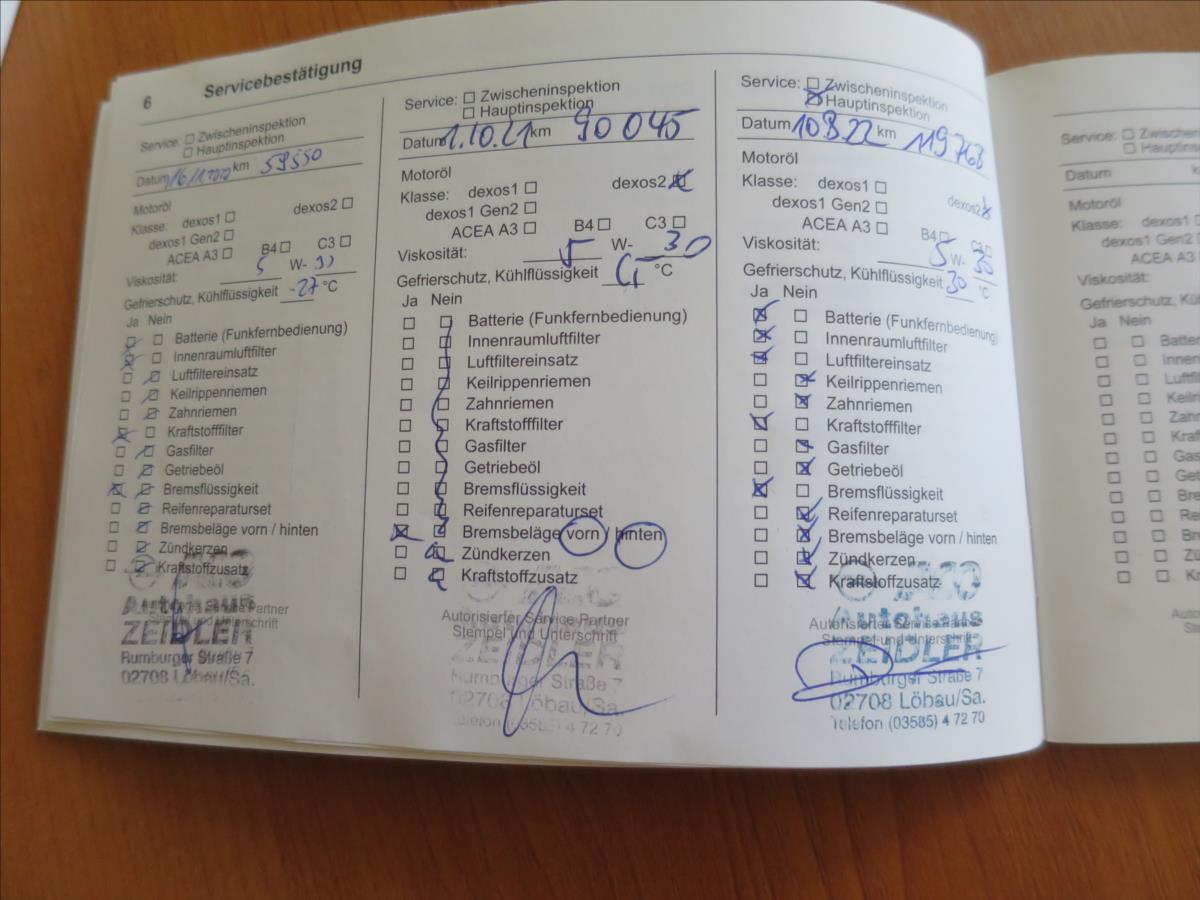 6 Servicebestätigung
Service: Zwischeninspektion
Hauptinspektion
Datum km 59550
Motoröl
Klasse: dexos1 dexos2
dexos1 Gen2
ACEA A3 B4 C3
Viskosität: 5 W-
Gefrierschutz, Kühlflüssigkeit -27 °C
Ja Nein
Batterie (Funkfernbedienung)
Innenraumluftfilter
Luftfiltereinsatz
Keilrippenriemen
Zahnriemen
Kraftstofffilter
Gasfilter
Getriebeöl
Bremsflüssigkeit
Reifenreparaturset
Bremsbeläge vorn / hinten
Zündkerzen
Kraftstoffzusatz
Autohaus
ZEIDLER
Rumburger Straße 7
02708 Löbau/Sa.
Service: Zwischeninspektion
Hauptinspektion
Datum 1.10.21 km 90045
Motoröl
Klasse: dexos1 dexos2
dexos1 Gen2
ACEA A3 B4 C3
Viskosität: 5 W- 30
Gefrierschutz, Kühlflüssigkeit °C
Ja Nein
Batterie (Funkfernbedienung)
Innenraumluftfilter
Luftfiltereinsatz
Keilrippenriemen
Zahnriemen
Kraftstofffilter
Gasfilter
Getriebeöl
Bremsflüssigkeit
Reifenreparaturset
Bremsbeläge vorn / hinten
Zündkerzen
Kraftstoffzusatz
Autorisierter Service Partner
Stempel und Unterschrift
ZEIDLER
Rumburger Straße 7
02708 Löbau/Sa.
Telefon (03585) 4 72 70
Service: Zwischeninspektion
Hauptinspektion
Datum 10.8.22 km 119768
Motoröl
Klasse: dexos1 dexos2
dexos1 Gen2
ACEA A3 B4 C3
Viskosität: 5 W- 30
Gefrierschutz, Kühlflüssigkeit 30 °C
Ja Nein
Batterie (Funkfernbedienung)
Innenraumluftfilter
Luftfiltereinsatz
Keilrippenriemen
Zahnriemen
Kraftstofffilter
Gasfilter
Getriebeöl
Bremsflüssigkeit
Reifenreparaturset
Bremsbeläge vorn / hinten
Zündkerzen
Kraftstoffzusatz
Autohaus
Autorisierter
Stempel und Unterschrift
ZEIDLER
Rumburger Straße 7
02708 Löbau/Sa.
Telefon (03585) 4 72 70
Service:
Datum
Motoröl
Klasse: dexos1
dexos1 Gen2
ACEA A3
Viskosität:
Gefrierschutz,
Ja Nein